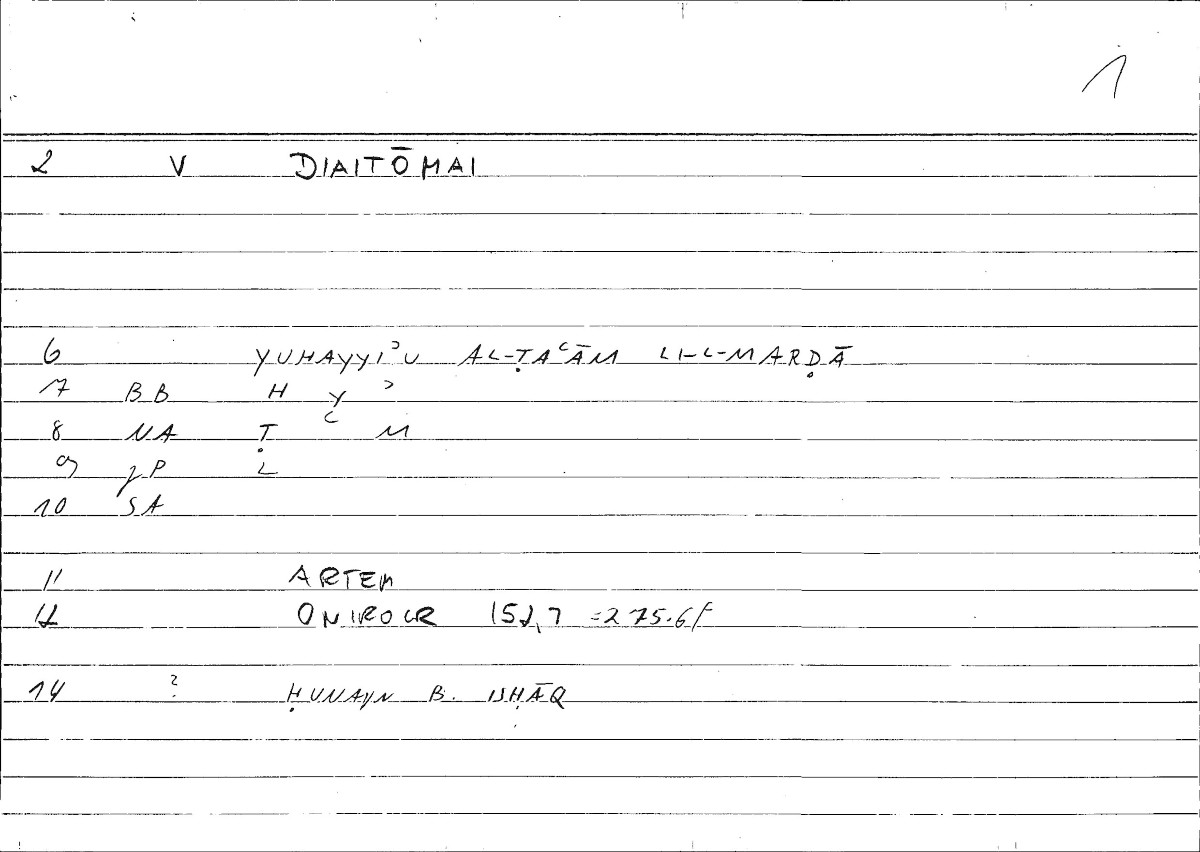 1
2 V DIAITŌMAI
6 YUHAYYIʾU AL-ṬAʿĀM LI-L-MARḌĀ
7 BB H Y ʾ
8 NA Ṭ ʿ M
9 JP L
10 SA
11 ARTEM
12 ONIROCR 152,7 =275.6f
14 ? ḤUNAYN B. ISḤĀQ